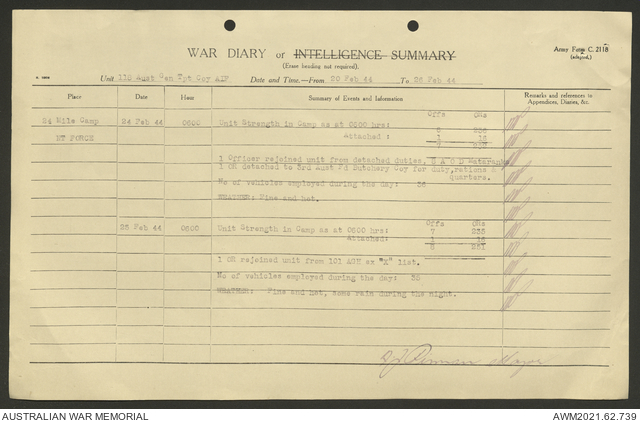 WAR DIARY or INTELLIGENCE SUMMARY
(Erase heading not required).
Army Form C. 2118
(adapted.)
Unit 115 Aust Gen Tpt Coy AIF Date and Time—From 20 Feb 44 To 26 Feb 44
Place Date Hour Summary of Events and Information Remarks and references to
Appendices, Diaries, &c.
Offs ORs
Mile Camp 24 Feb 44 0600 Unit Strength in Camp as at 0600 hrs:
NT FORCE Attached :
1 Officer rejoined unit from detached duties,
1 OR detached to 3rd Aust Fd Butchery Coy for duty, rations &
quarters.
No of vehicles employed during the day: 36
WEATHER: Fine and hot.
Offs ORs
25 Feb 44 0600 Unit Strength in Camp as at 0600 hrs: 7
Attached: 1
8
1 OR rejoined unit from 101 AGH ex "X" list.
No of vehicles employed during the day: 38
WEATHER: Fine and hot, some rain during the night.
Major
AUSTRALIAN WAR MEMORIAL AWM2021.62.739